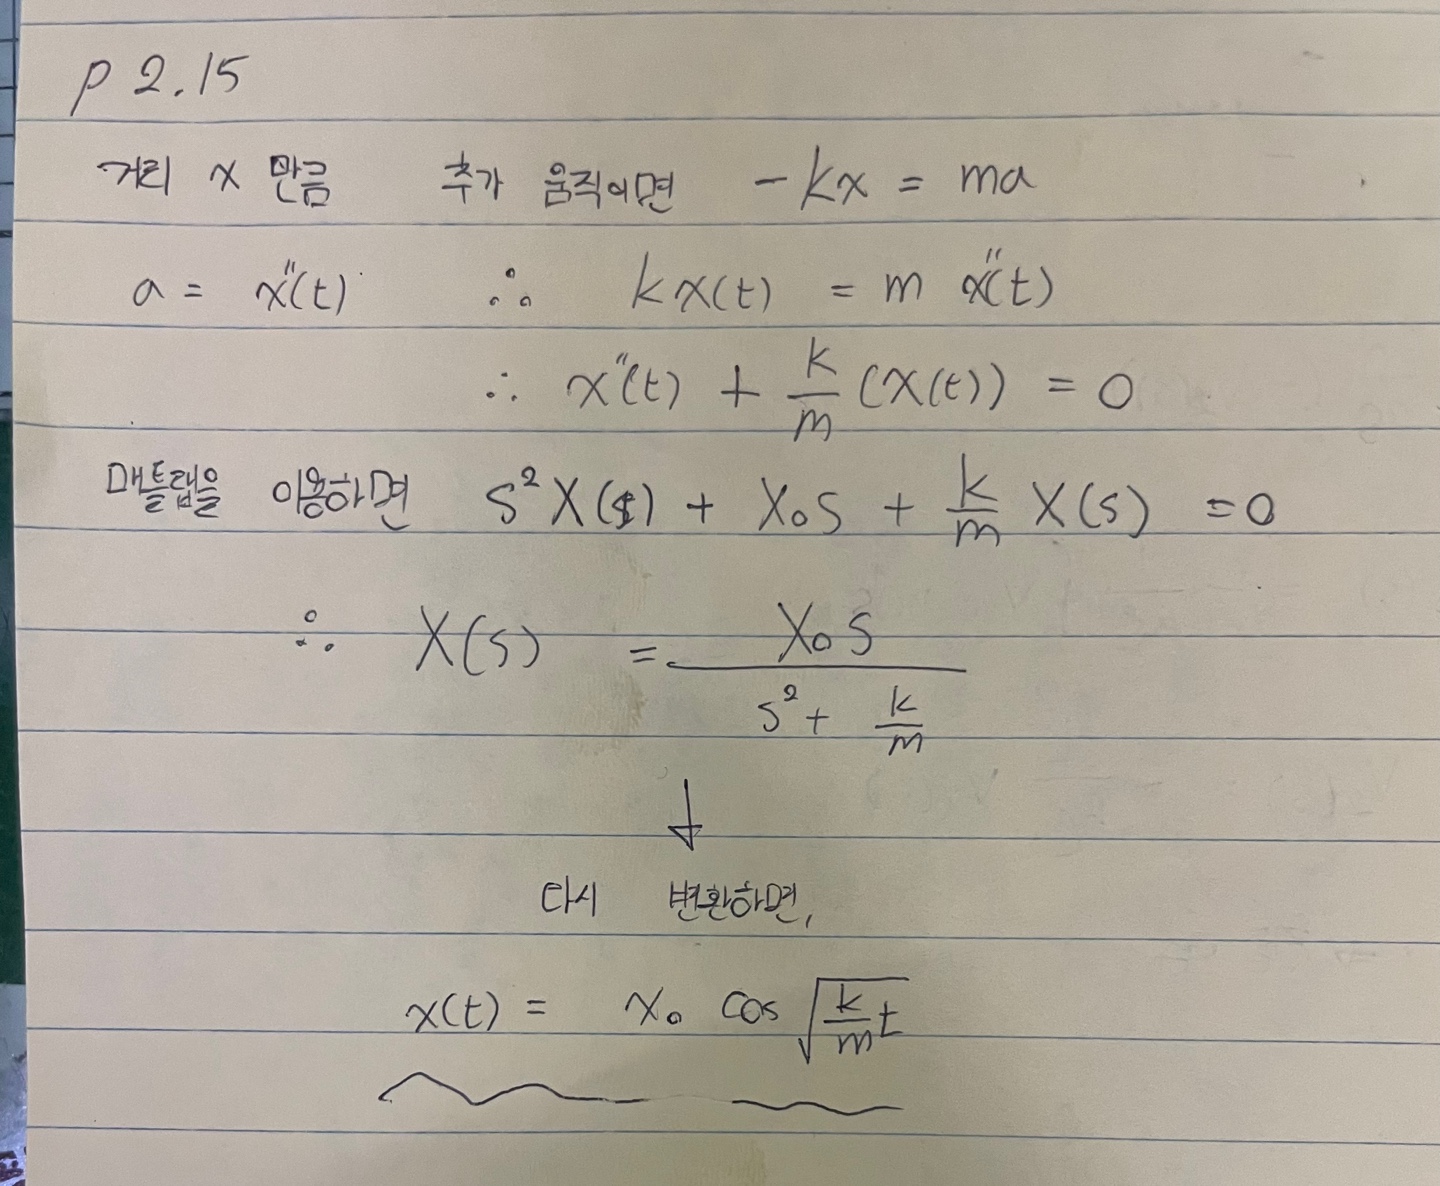 p 2.15
거리 x 만큼 추가 움직이면 -kx = ma
a = x''(t) ∴ kx(t) = m x''(t)
∴ x''(t) + k/m (x(t)) = 0
매틀랩을 이용하면 s²X(s) + X₀s + k/m X(s) = 0
∴ X(s) = X₀s / (s² + k/m)
↓
다시 변환하면,
x(t) = x₀ cos √(k/m t)